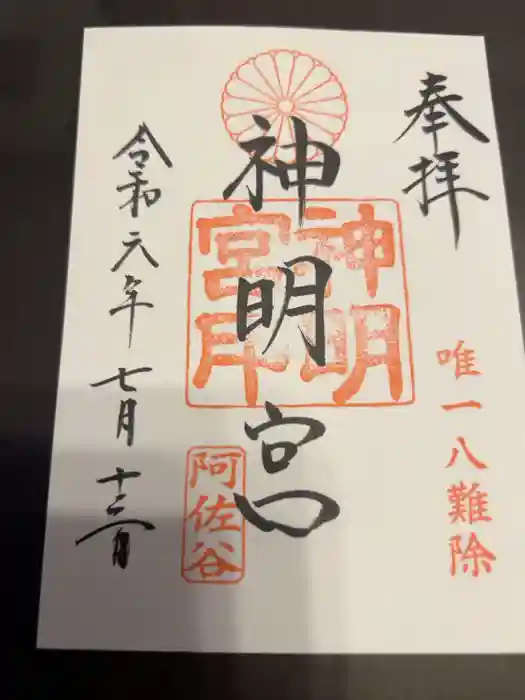 奉拝
唯一八難除
神明宮
神明
宮印
阿佐谷
令和六年七月十二日